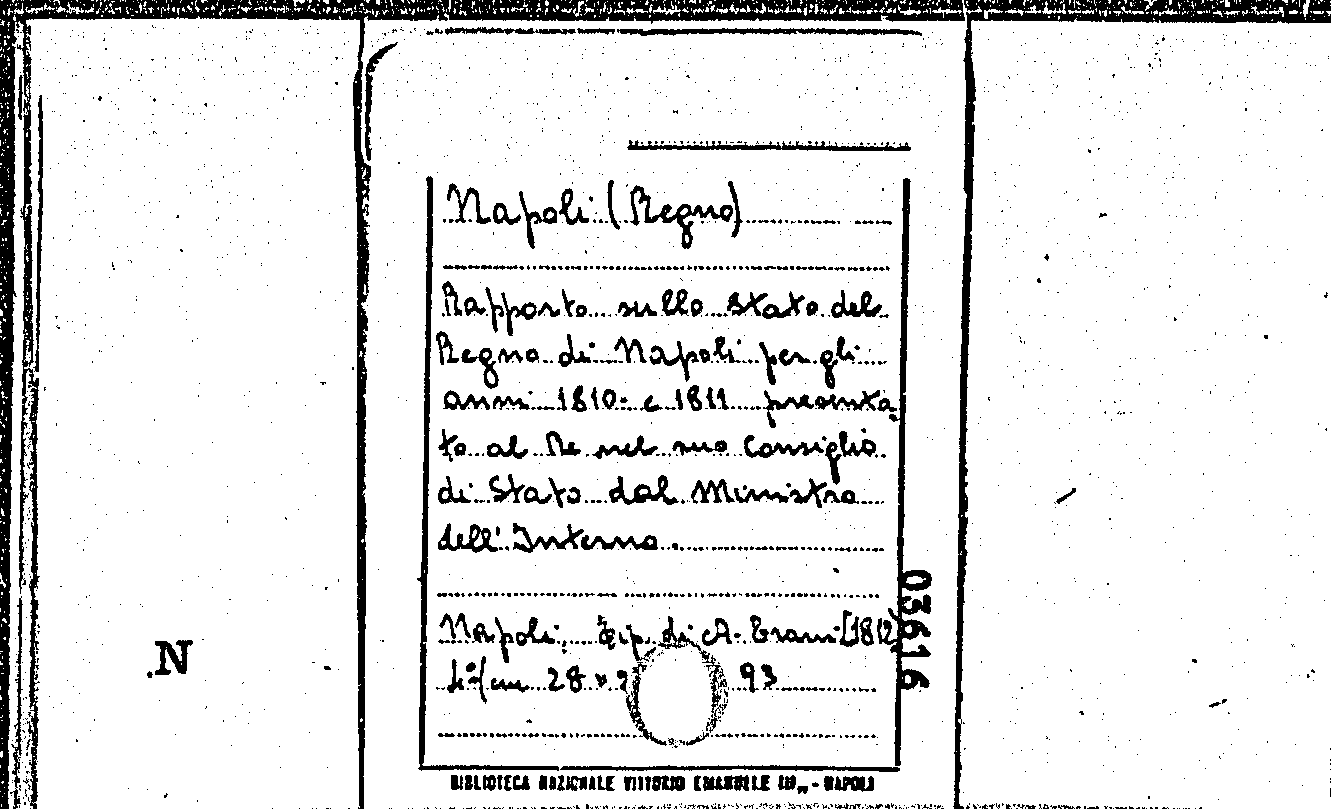 Napoli (Regno)
Rapporto sullo stato del
Regno di Napoli per gli
anni 1810 e 1811 presenta
to al Re nel suo Consiglio
di Stato dal Ministro
dell'Interno.
Napoli, Tip. di A. Trani [1812]
4º/cm 28 x 93
03616
N
BIBLIOTECA NAZIONALE VITTORIO EMANUELE III„ - NAPOLI